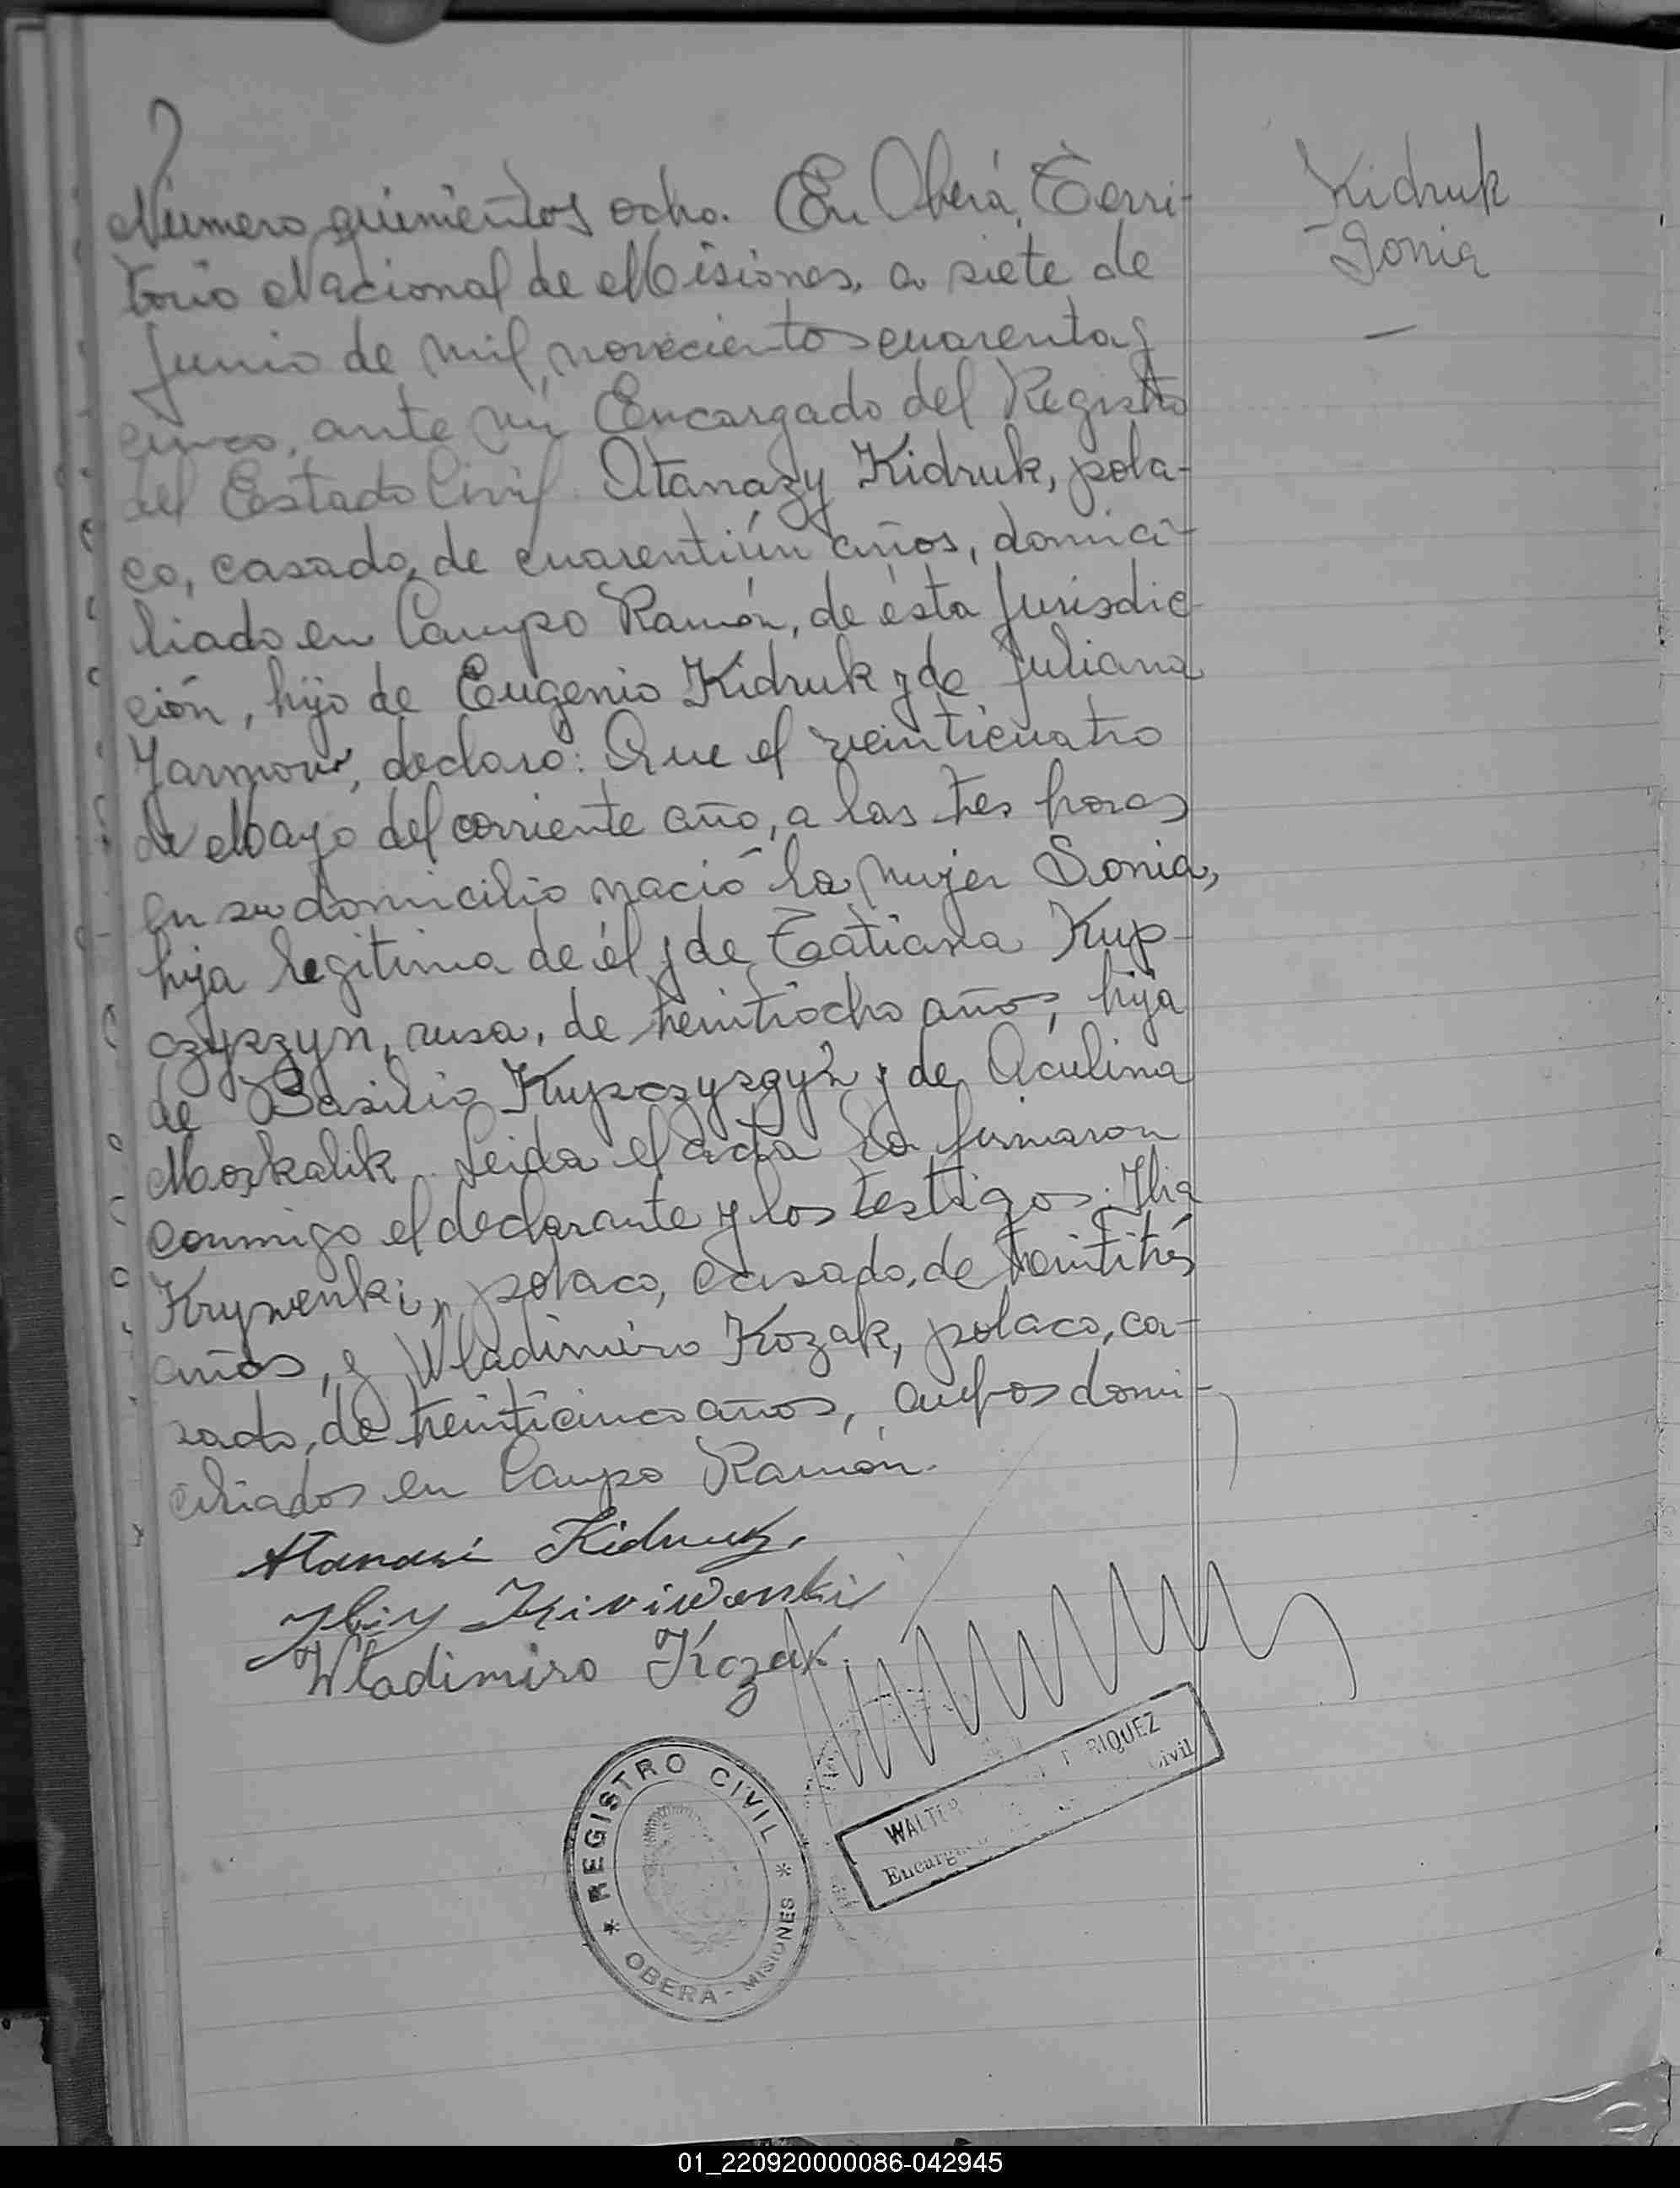 Kidruk
Sonia
Número quinientos ocho. En Oberá, Terri-
torio Nacional de Misiones, a siete de
Junio de mil novecientos cuarenta y
cinco, ante mí Encargado del Registro
del Estado Civil. Atanazy Kidruk, pola-
co, casado, de cuarentiún años, domici-
liado en Campo Ramón, de ésta Jurisdic-
ción, hijo de Eugenio Kidruk y de Juliana
Jarmow, declaró: Que el veinticuatro
de Mayo del corriente año, a las tres horas
en su domicilio nació la mujer Sonia,
hija legitima de él y de Tatiana Kup-
czyszyn, rusa, de treintiocho años, hija
de Basilio Kupczyszyn y de Aculina
Moskalik. Leida el acta la firmaron
conmigo el declarante y los testigos: Ilia
Krywenki, polaco, casado, de treintitrés
años, y Wladimiro Kozak, polaco, ca-
sado, de treinticinco años, ambos domi-
ciliados en Campo Ramón.
Atanasi Kidruk
Kriwienki
Wladimiro Kozak
REGISTRO CIVIL
OBERA - MISIONES
WALTER RIQUEZ
Civil
01_220920000086-042945